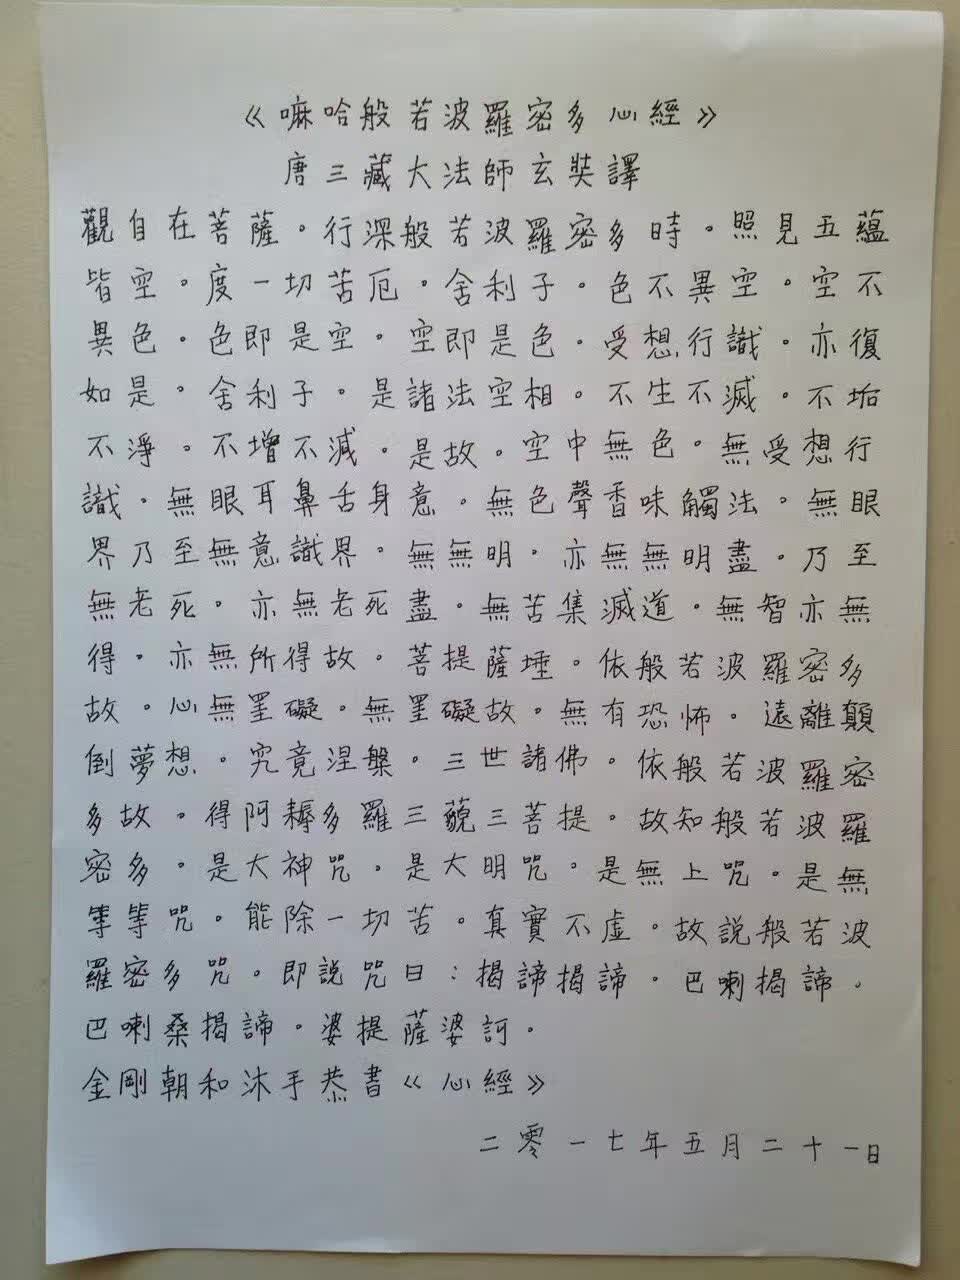 《嘛哈般若波羅密多心經》
唐三藏大法師玄奘譯
觀自在菩薩。行深般若波羅密多時。照見五蘊
皆空。度一切苦厄。舍利子。色不異空。空不
異色。色即是空。空即是色。受想行識。亦復
如是。舍利子。是諸法空相。不生不滅。不垢
不淨。不增不減。是故。空中無色。無受想行
識。無眼耳鼻舌身意。無色聲香味觸法。無眼
界乃至無意識界。無無明。亦無無明盡。乃至
無老死。亦無老死盡。無苦集滅道。無智亦無
得。亦無所得故。菩提薩埵。依般若波羅密多
故。心無罣礙。無罣礙故。無有恐怖。遠離顛
倒夢想。究竟涅槃。三世諸佛。依般若波羅密
多故。得阿耨多羅三藐三菩提。故知般若波羅
密多。是大神咒。是大明咒。是無上咒。是無
等等咒。能除一切苦。真實不虛。故説般若波
羅密多咒。即説咒曰：揭諦揭諦。巴喇揭諦。
巴喇桑揭諦。婆提薩婆訶。
金剛朝和沐手恭書《心經》
二零一七年五月二十一日